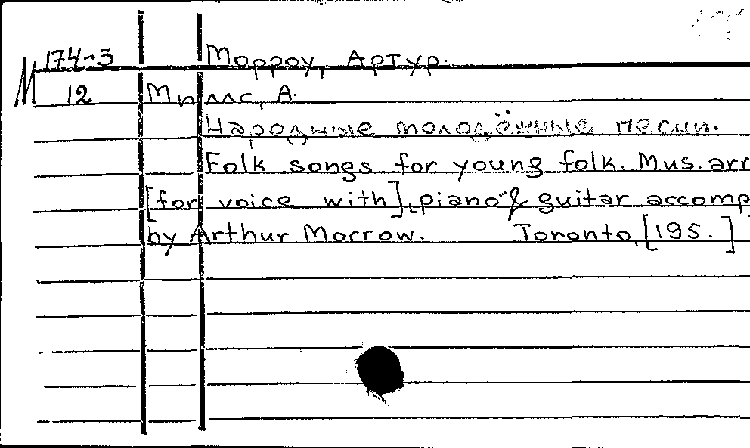 М 174-3 Морроу, Артур.
12 Миллс, А.
Народные молодёжные песни.
Folk songs for young folk. Mus. arr
[for voice with] piano & guitar accomp
by Arthur Morrow. Toronto, [195. ]